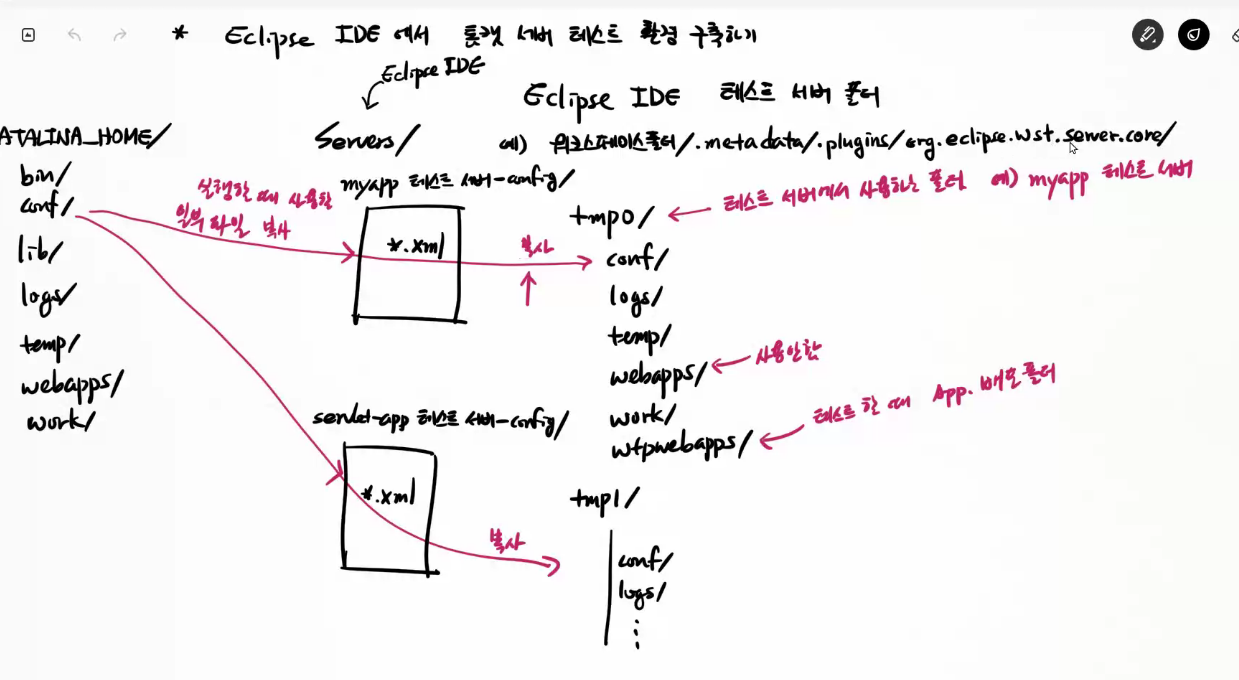 * Eclipse IDE 에서 톰캣 서버 테스트 환경 구축하기
Eclipse IDE
Eclipse IDE 테스트 서버 폴더
ATALINA_HOME/
bin/
conf/
lib/
logs/
temp/
webapps/
work/
Servers/
실행할 때 사용할
일부 파일 복사
myapp 테스트 서버-config/
*.xml
복사
servlet-app 테스트 서버-config/
*.xml
복사
예) 워크스페이스폴더/.metadata/.plugins/org.eclipse.wst.server.core/
tmp0/ ← 테스트 서버에서 사용하는 폴더 예) myapp 테스트 서버
conf/
logs/
temp/
webapps/ ← 사용안함
work/
wtpwebapps/ ← 테스트 할 때 App. 배포 폴더
tmp1/
conf/
logs/
⋮